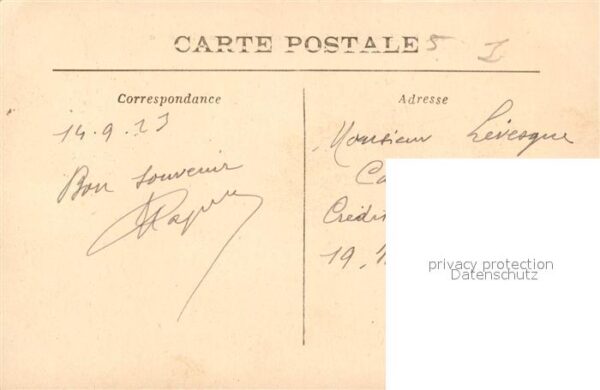 CARTE POSTALE 5 I
Correspondance
14.9.23
Bon souvenir
Adresse
Monsieur Lévesque
Ca
Crédi
19,
privacy protection
Datenschutz